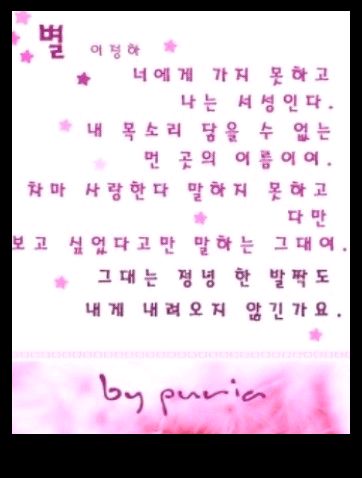 별 이정하
너에게 가지 못하고
나는 서성인다.
내 목소리 닿을 수 없는
먼 곳의 이름이여.
차마 사랑한다 말하지 못하고
다만
보고 싶었다고만 말하는 그대여.
그대는 정녕 한 발짝도
내게 내려오지 않긴가요.
by puria